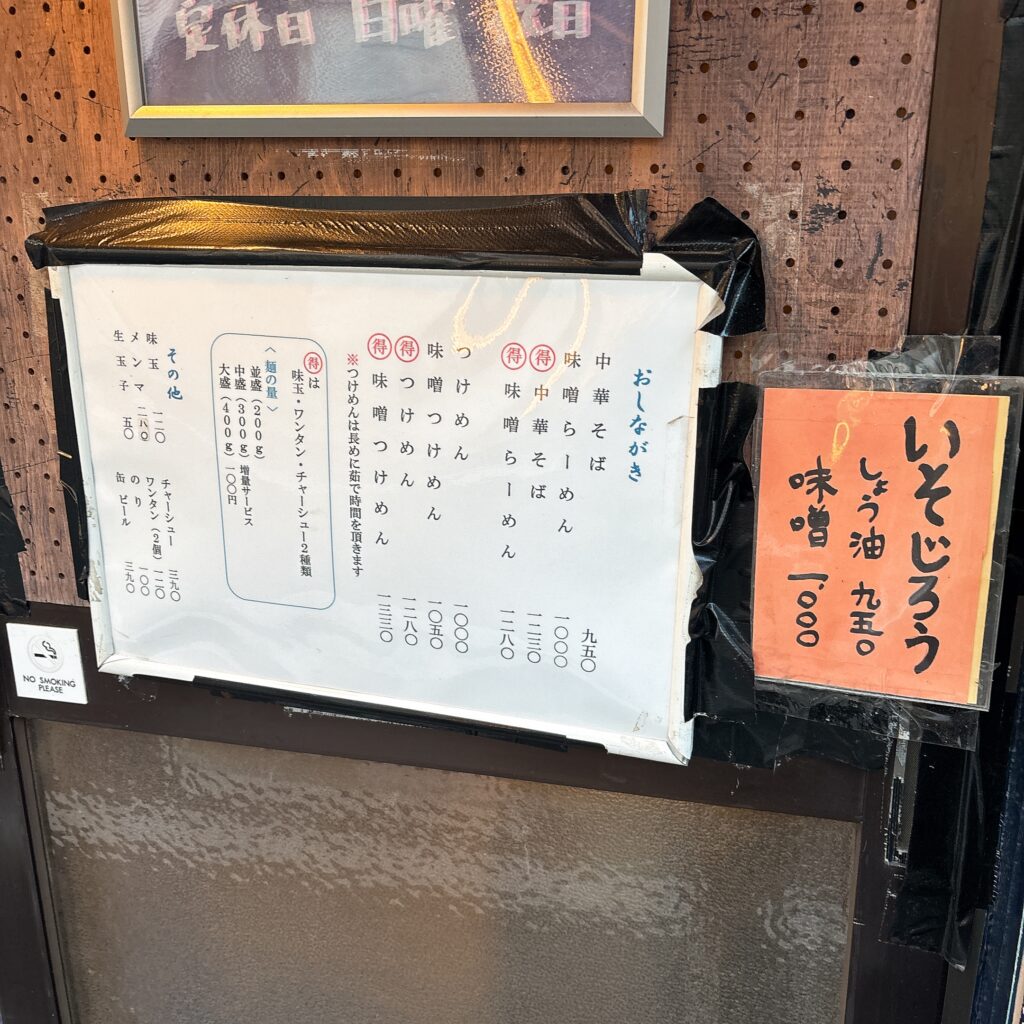 定休日 日曜
おしながき
中華そば 九五〇
味噌らーめん 一〇〇〇
得 中華そば 一二三〇
得 味噌らーめん 一二八〇
つけめん 一〇〇〇
味噌つけめん 一〇五〇
得 つけめん 一二八〇
得 味噌つけめん 一三三〇
※つけめんは長めに茹で時間を頂きます
得は
味玉・ワンタン・チャーシュー2種類
〈麺の量〉
並盛(200g)
中盛(300g)増量サービス
大盛(400g)一〇〇円
その他
味玉 一二〇
メンマ 二八〇
生玉子 五〇
チャーシュー 三九〇
ワンタン(2個) 一二〇
のり 一〇〇
缶ビール 三九〇
いそじろう
しょう油 九五〇
味噌 一、〇〇〇
NO SMOKING
PLEASE